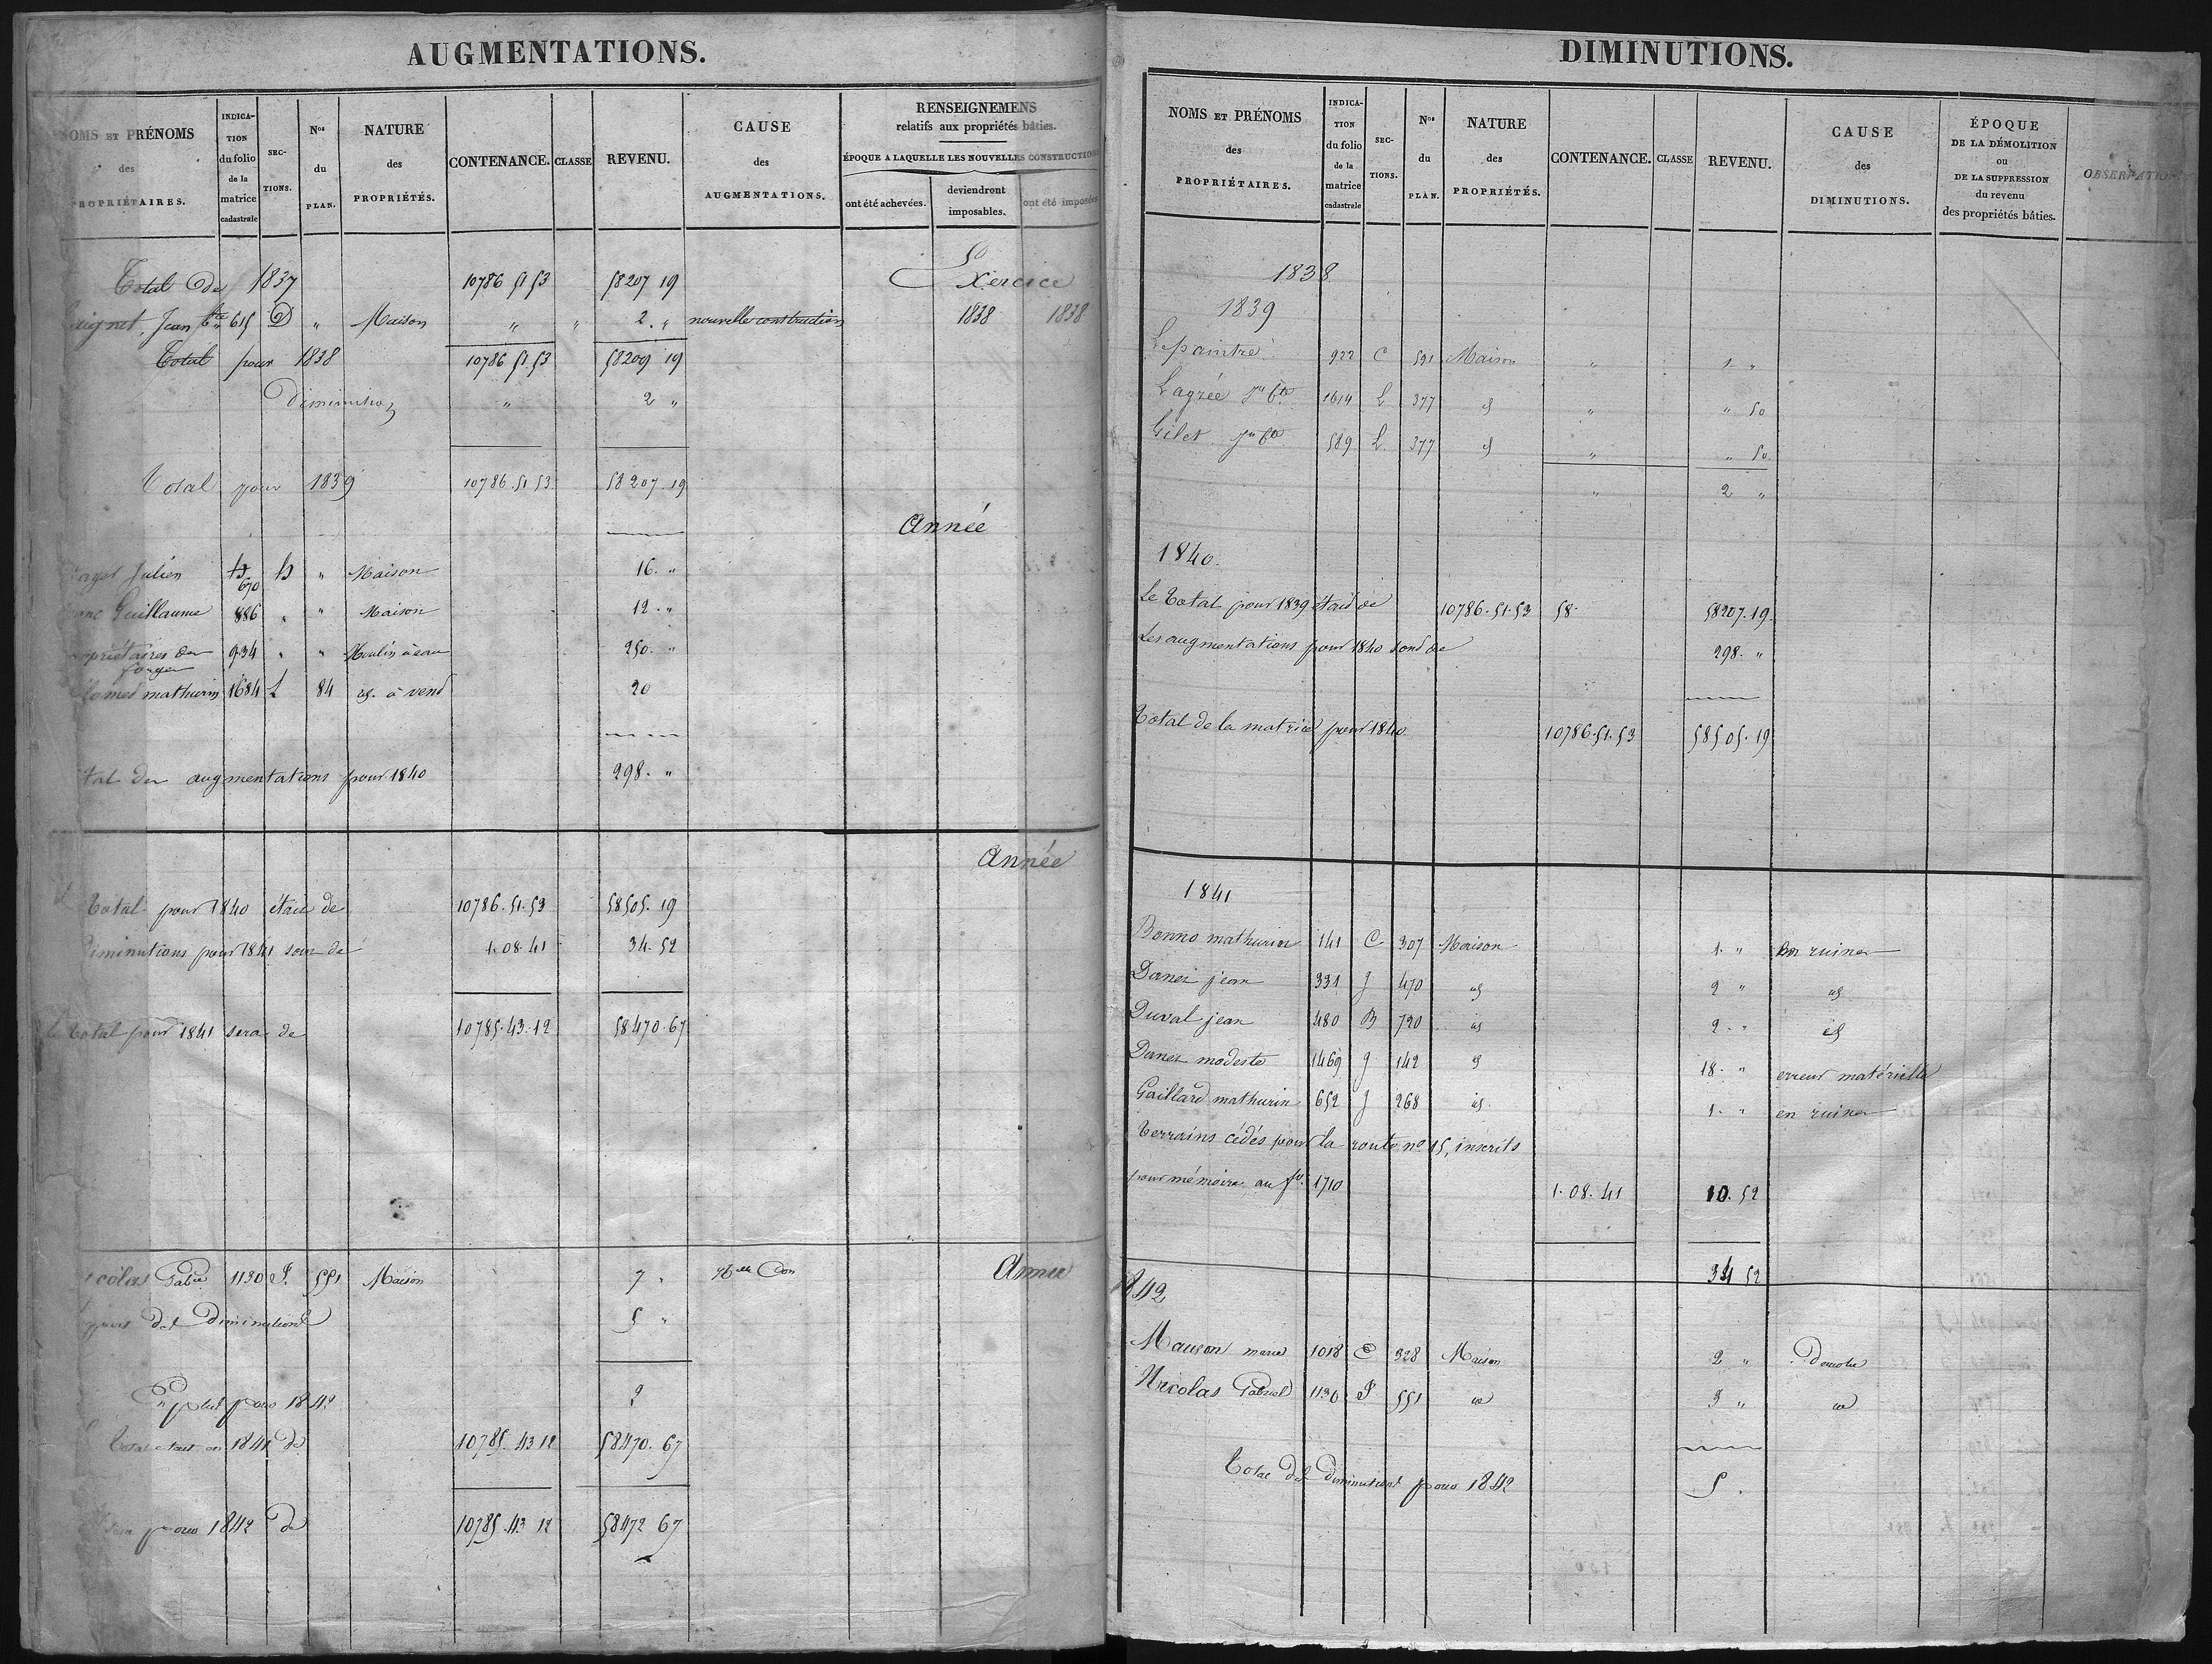 AUGMENTATIONS.
NOMS ET PRÉNOMS des PROPRIÉTAIRES.
INDICATION du folio de la matrice cadastrale
SECTIONS.
Nos du PLAN.
NATURE des PROPRIÉTÉS.
CONTENANCE.
CLASSE
REVENU.
CAUSE des AUGMENTATIONS.
RENSEIGNEMENS relatifs aux propriétés bâties.
ÉPOQUE A LAQUELLE LES NOUVELLES CONSTRUCTIONS
ont été achevées.
deviendront imposables.
ont été imposées
Exercice
Total de 1837 10786 51 53 58207 19
Jean Bte 615 D " Maison " " 2. " nouvelle construction 1838 1838
Total pour 1838 10786 51.53 58209 19
Diminution " 2 "
Total pour 1839 10786.51 53 58207.19
Année
Julien 670 " Maison 16. "
Guillaume 886 " " Maison 12. "
934 " " Moulin à eau 250. "
forges
mathurin 1684 L 84 id. à vend 20
augmentations pour 1840 298. "
Année
Total pour 1840 était de 10786.51.53 58505.19
Diminutions pour 1841 sont de 1.08.41 34.52
total pour 1841 sera de 10785.43.12 58470.67
Gab. 1130 551 Maison 7 " Année
des Diminutions 5 "
En plus pour 1842 2
Total était en 1841 de 10785.43 12 58470.67
pour 1842 de 10785.43 12 58472 67
DIMINUTIONS.
NOMS ET PRÉNOMS des PROPRIÉTAIRES.
INDICATION du folio de la matrice cadastrale
SECTIONS.
Nos du PLAN.
NATURE des PROPRIÉTÉS.
CONTENANCE.
CLASSE
REVENU.
CAUSE des DIMINUTIONS.
ÉPOQUE DE LA DÉMOLITION ou DE LA SUPPRESSION du revenu des propriétés bâties.
OBSERVATIONS
1838
1839
Lepaintre 922 C 591 Maison " 1 "
Lagrée Jn Bte 1614 L 377 id " " 50
Gilet Jn Bte 589 L 377 id " " 50
" 2 "
1840.
Le total pour 1839 était de 10786.51.53 58. 58207.19
Les augmentations pour 1840 sont de 298. "
Total de la matrice pour 1840 10786.51.53 58505.19
1841
Bonno mathurin 141 C 307 Maison 1. " En ruines
Danet jean 331 J 470 id 2 " id
Duval jean 480 B 720 id 2. " id
Danet modeste 1469 J 142 id 18. " erreur matérielle
Gaillard mathurin 652 J 268 id. 1. " en ruines
Terrains cédés pour la route no 15, inscrits
pour mémoire au fo. 1710 1.08.41 10.52
34 52
1842
marie 1018 E 328 Maison 2 " Démolie
Nicolas Gabriel 1130 551 id 3 " id
Total des Diminutions pour 1842 5.